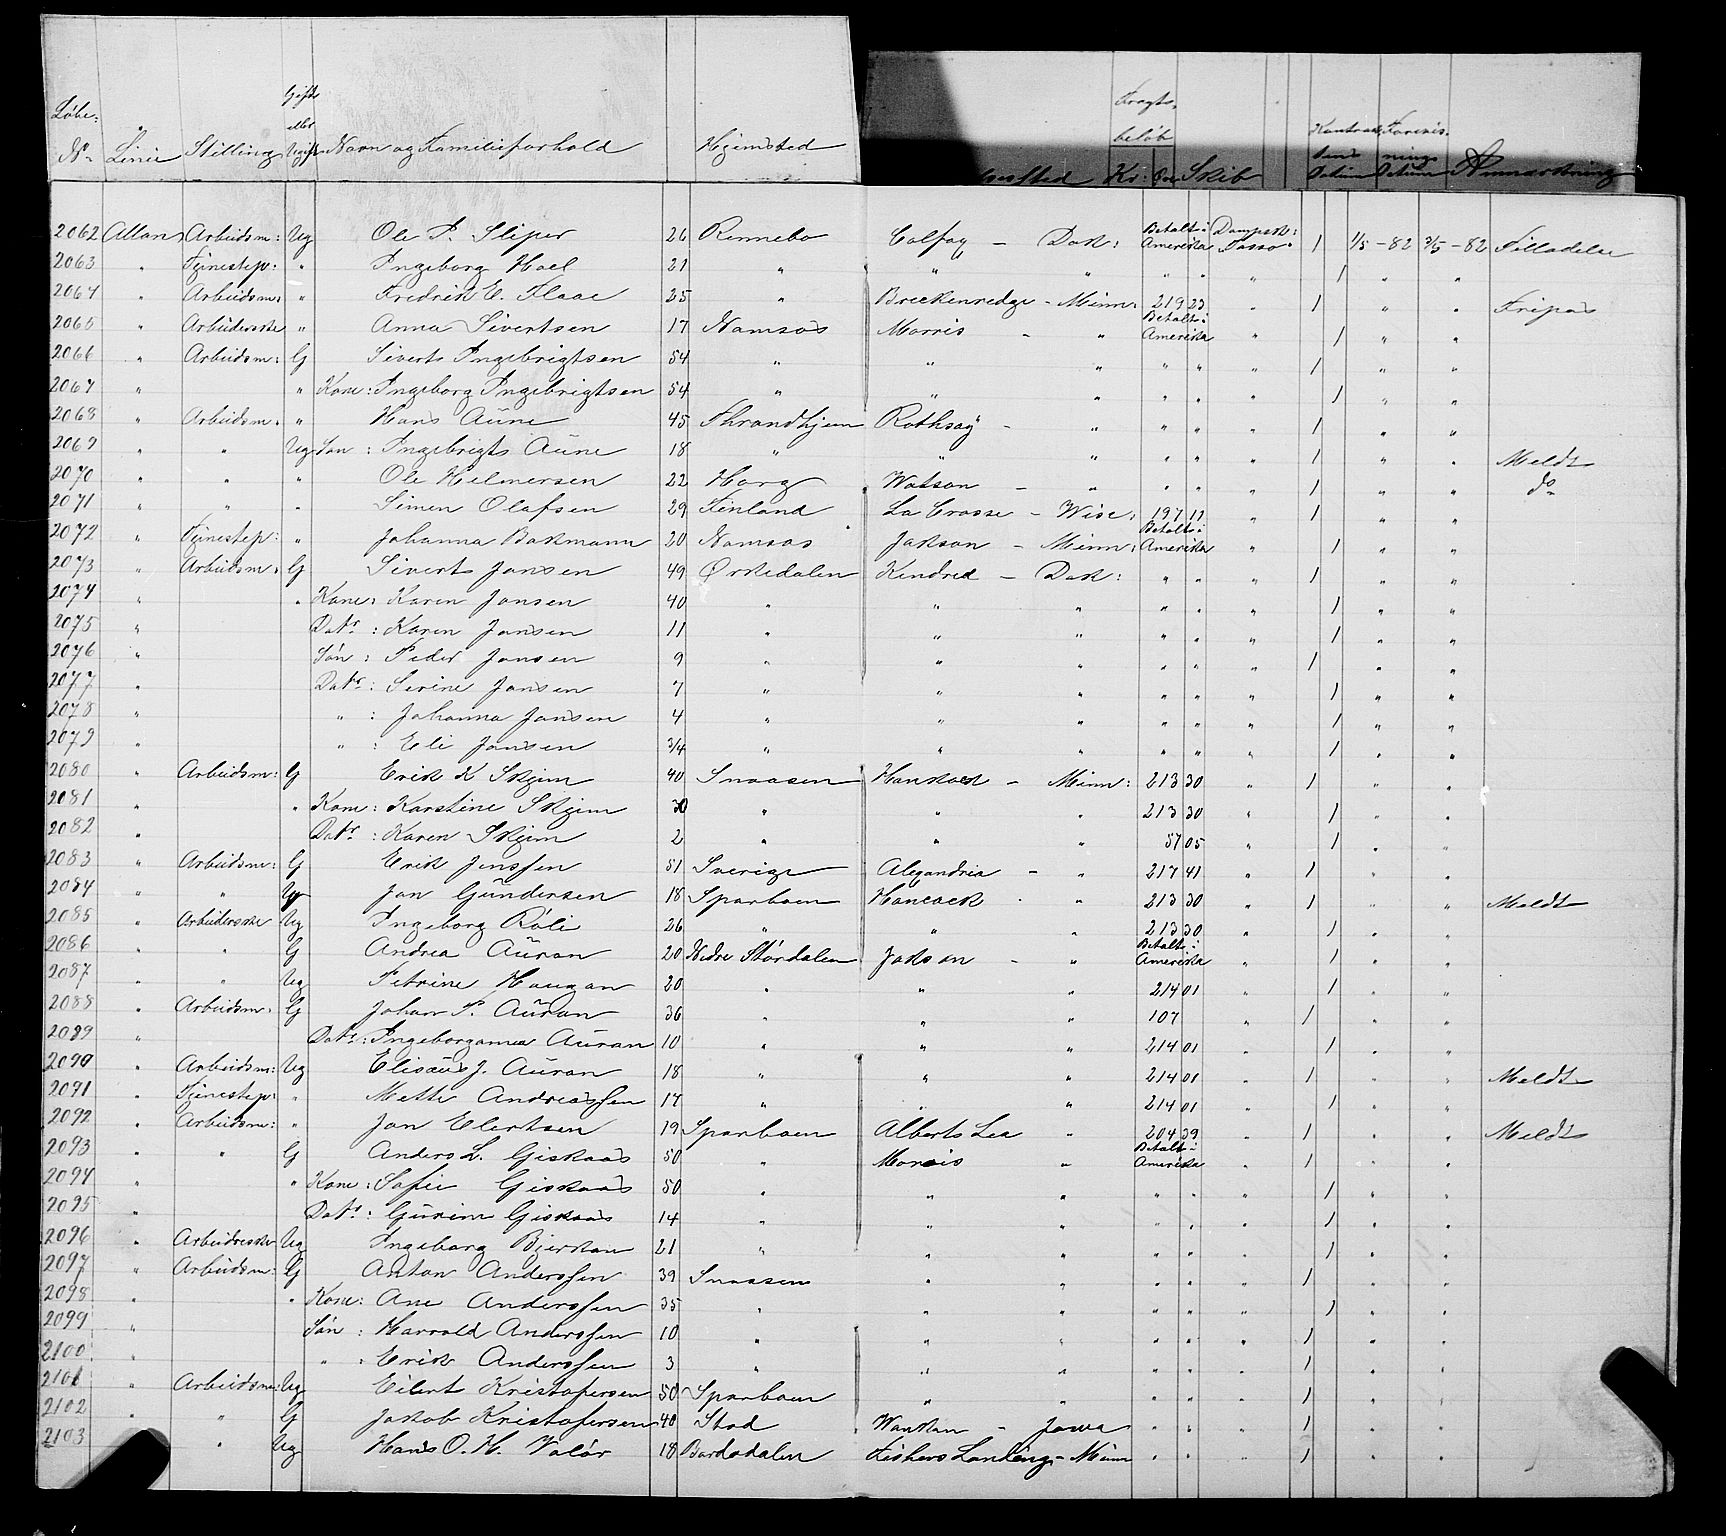 Løbe- No Linie Stilling Gift eller Ugift Navn og Familieforhold Hjemsted Fragtbeløb Kr: Øre Skib Anmærkning
2062 Allan Arbeidsm: Ug Ole P. Sliper 26 Rennebo Colfax - Dak: Betalt i Amerika Dampsk: Tasso 1 1/5 - 82 3/5 - 82
2063 " Tjenestep: " Ingeborg Hoel 21 " " " " " " 1 " "
2064 " Arbeidsm: " Fredrik E. Flaae 25 " Breckenredge - Minn: 219 23 " 1 " " Fripas
2065 " Arbeiderske " Anna Sivertsen 17 Namsos Morris - " Betalt i Amerika " 1 " "
2066 " Arbeidsm: G Siverts Ingebrigtsen 54 " " " " " " 1 " "
2067 " " Kone: Ingeborg Ingebrigtsen 54 " " " " " " 1 " "
2068 " Arbeidsm: " Hans Aune 45 Thrandhjem Rothsay - " " " " 1 " "
2069 " " Ug Søn: Ingebrigts Aune 18 " " " " " " 1 " " Meldt
2070 " " " Ole Helmersen 22 Horg Watson - " " " " 1 " " do
2071 " " " Simen Olafsen 29 Finland La Crosse - Wisc: 197 11 " 1 " "
2072 " Tjenestep: " Johanna Bakmann 20 Namsos Jakson - Minn: Betalt i Amerika " 1 " "
2073 " Arbeidsm: G Sivert Jansen 49 Ørkedalen Kindred - Dak: " " " 1 " "
2074 " " Kone: Karen Jansen 40 " " " " " " 1 " "
2075 " Datr: Karen Jansen 11 " " " " " " 1 " "
2076 " Søn: Peder Jansen 9 " " " " " " 1 " "
2077 " Datr: Serine Jansen 7 " " " " " " 1 " "
2078 " " : Johanna Jansen 4 " " " " " " 1 " "
2079 " " : Eli Jansen 3/4 " " " " " " 1 " "
2080 " Arbeidsm: G Erik K Skjem 40 Snaasen Hankock - Minn: 213 30 " 1 " "
2081 " " Kone: Karstine Skjem 30 " " " 213 30 " 1 " "
2082 " Datr: Karen Skjem 2 " " " 57 05 " 1 " "
2083 " Arbeidsm: G Erik Jenssen 51 Sverige Alexandria - " 217 41 " 1 " "
2084 " " Ug Jon Gundersen 18 Sparboen Hancock - " 213 30 " 1 " " Meldt
2085 " Arbeiderske Ug Ingeborg Røli 26 " " " 213 30 " 1 " "
2086 " " G Andrea Auran 20 Nedre Størdalen Jakson - " Betalt i Amerika " 1 " "
2087 " " Ug Petrine Haugan 20 " " " 214 01 " 1 " "
2088 " Arbeidsm: G Johan P. Auran 36 " " " 107 " 1 " "
2089 " Datr: Ingeborganna Auran 10 " " " 214 01 " 1 " "
2090 " Arbeidsm: Ug Elisæus J. Auran 18 " " " 214 01 " 1 " " Meldt
2091 " Tjenestep: " Mette Andreassen 17 " " " 214 01 " 1 " "
2092 " Arbeidsm: " Jon Elertsen 19 Sparboen Alberts Lea " 204 39 " 1 " " Meldt
2093 " " G Anders L. Giskaas 50 " Morris " Betalt i Amerika " 1 " "
2094 " " Kone: Sofie Giskaas 50 " " " " " " 1 " "
2095 " Datr: Gurine Giskaas 14 " " " " " " 1 " "
2096 " Arbeiderske Ug Ingeborg Bjerkan 21 " " " " " " 1 " "
2097 " Arbeidsm: G Anton Anderssen 39 Snaasen " " " " " 1 " "
2098 " " Kone: Ane Anderssen 35 " " " " " " 1 " "
2099 " Søn: Harrald Anderssen 10 " " " " " " 1 " "
2100 " " : Erik Anderssen 3 " " " " " " 1 " "
2101 " Arbeidsm: Ug Eilert Kristofersen 50 Sparboen " " " " " 1 " "
2102 " " G Jakob Kristofersen 40 Stod Waukan - Jowa " " " 1 " "
2103 " Ug Hans O. H. Valør 18 Bardodalen Fishers Landing - Minn " " " 1 " "